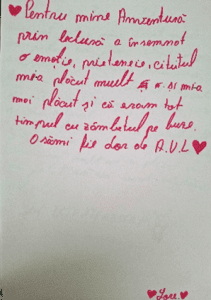 Pentru mine Amzentusă
prin lectură a însemnat
o emoție, prietenie, cititul
mia plăcut mult și mia
mai plăcut și că eram tot
timpul cu zâmbetul pe buze.
O sămi fie dor de A.V.L
Love.